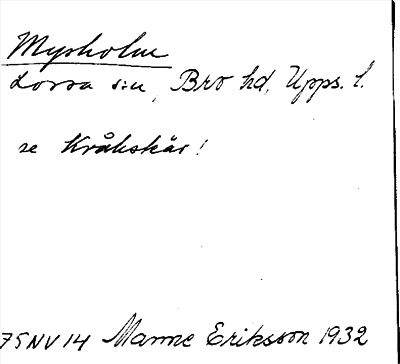 Mysholm
Lossa sn, Bro hd, Upps. l.
se Kråkskär!
75NV14 Manne Eriksson 1932